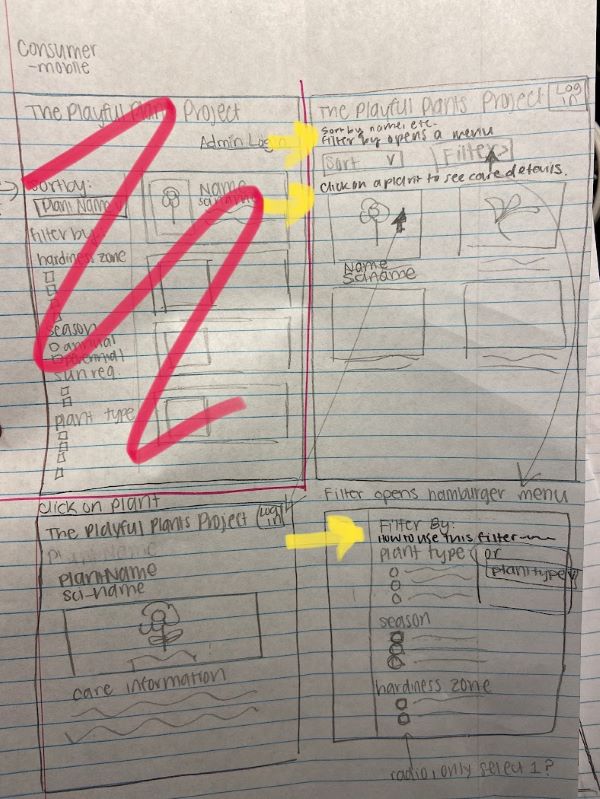 Consumer
-mobile
The Playful Plants Project
Admin Login
Sort by:
Plant Name v
Name
Filter by:
hardiness zone
season
annual
perennial
sun req.
plant type
The Playful Plants Project
Log in
Sort by name, etc.
Filter by opens a menu
Sort v
Filter >
Click on a plant to see care details.
Name
Sciname
click on plant
The Playful Plants Project
Log in
Plant Name
plantName
sci-name
care information
Filter opens hamburger menu
Filter By:
How to use this filter
plant type
or
plant type v
season
hardiness zone
radio, only select 1?